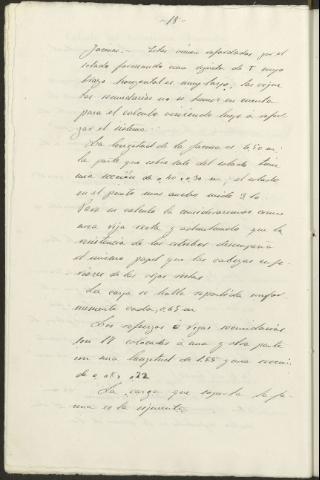 - 18 -
Jacenas. - Estas vienen reforzadas por el
solado formando una especie de T cuyo
brazo horizontal es muy largo; las vigue
tas secundarias no se tienen en cuenta
para el calculo viniendo luego a refor
zar el sistema.
La longitud de la jacena es 6,50 m.
la parte que sobre sale del solado tiene
una sección de 0,40 x 0,30 m; el solado
en el punto mas ancho mide 3,60
Para su calculo la consideraremos como
una viga recta y admitiendo que la
resistencia de los estribos desempeña
el mismo papel que las cabezas supe
riores de las vigas rectas.
La carga se halla repartida unifor
memente cada 0,65 m
Los refuerzos o vigas secundarias
son 18 colocados a una y otra parte
con una longitud de 1.55 y una sección
de 0,08 x 0,22
La carga que soporta la ja
cena es la siguiente